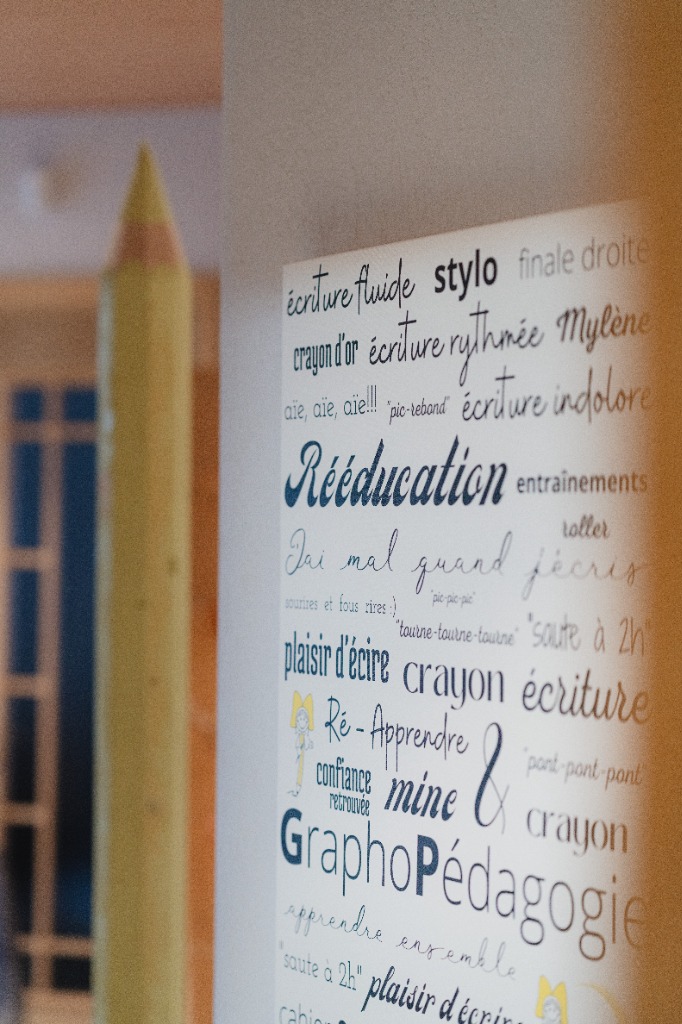 écriture fluide stylo finale droite
crayon d'or écriture rythmée Mylène
aïe, aïe, aïe!!! "pic-rebond" écriture indolore
Rééducation entraînements
roller
J'ai mal quand j'écris
sourires et fous rires :) "pic-pic-pic"
"tourne-tourne-tourne" "saute à 2h"
plaisir d'écire crayon écriture
Ré-Apprendre &
confiance retrouvée mine "pont-pont-pont"
crayon
GraphoPédagogie
apprendre ensemble
"saute à 2h" plaisir d'écrire
cahier